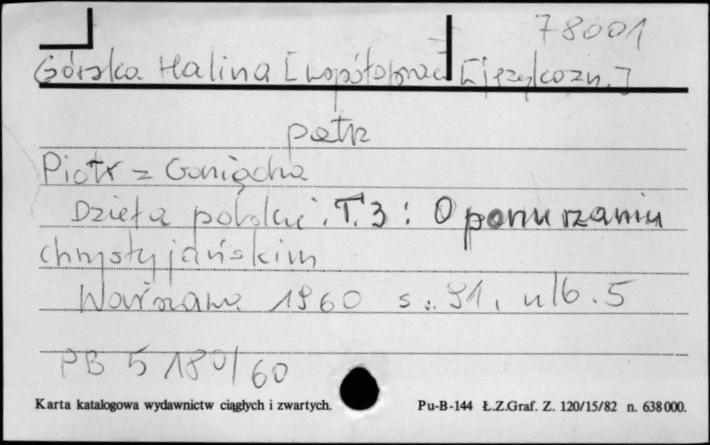 78001
Górska Halina [współoprac] [językozn.]
patrz
Piotr z Goniądza
Dzieła polskie. T. 3: O ponurzaniu
chrystyjańskim
Warszawa 1960 s. 91, nlb. 5
PB 5 180/60
Karta katalogowa wydawnictw ciągłych i zwartych. Pu-B-144 Ł.Z.Graf. Z. 120/15/82 n. 638 000.